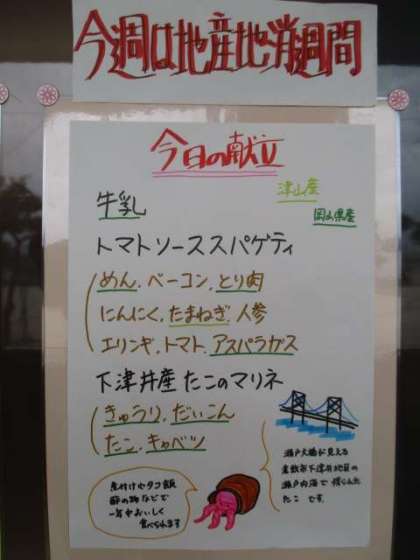 今週は地産地消週間
今日の献立
津山産
牛乳
岡山県産
トマトソーススパゲティ
めん、ベーコン、とり肉
にんにく、たまねぎ、人参
エリンギ、トマト、アスパラガス
下津井産たこのマリネ
きゅうり、だいこん
たこ、キャベツ
煮付けやタコ飯
酢の物などで
一年中おいしく
食べられます
瀬戸大橋が見える
倉敷市下津井地区の
瀬戸内海で獲られた
たこです。